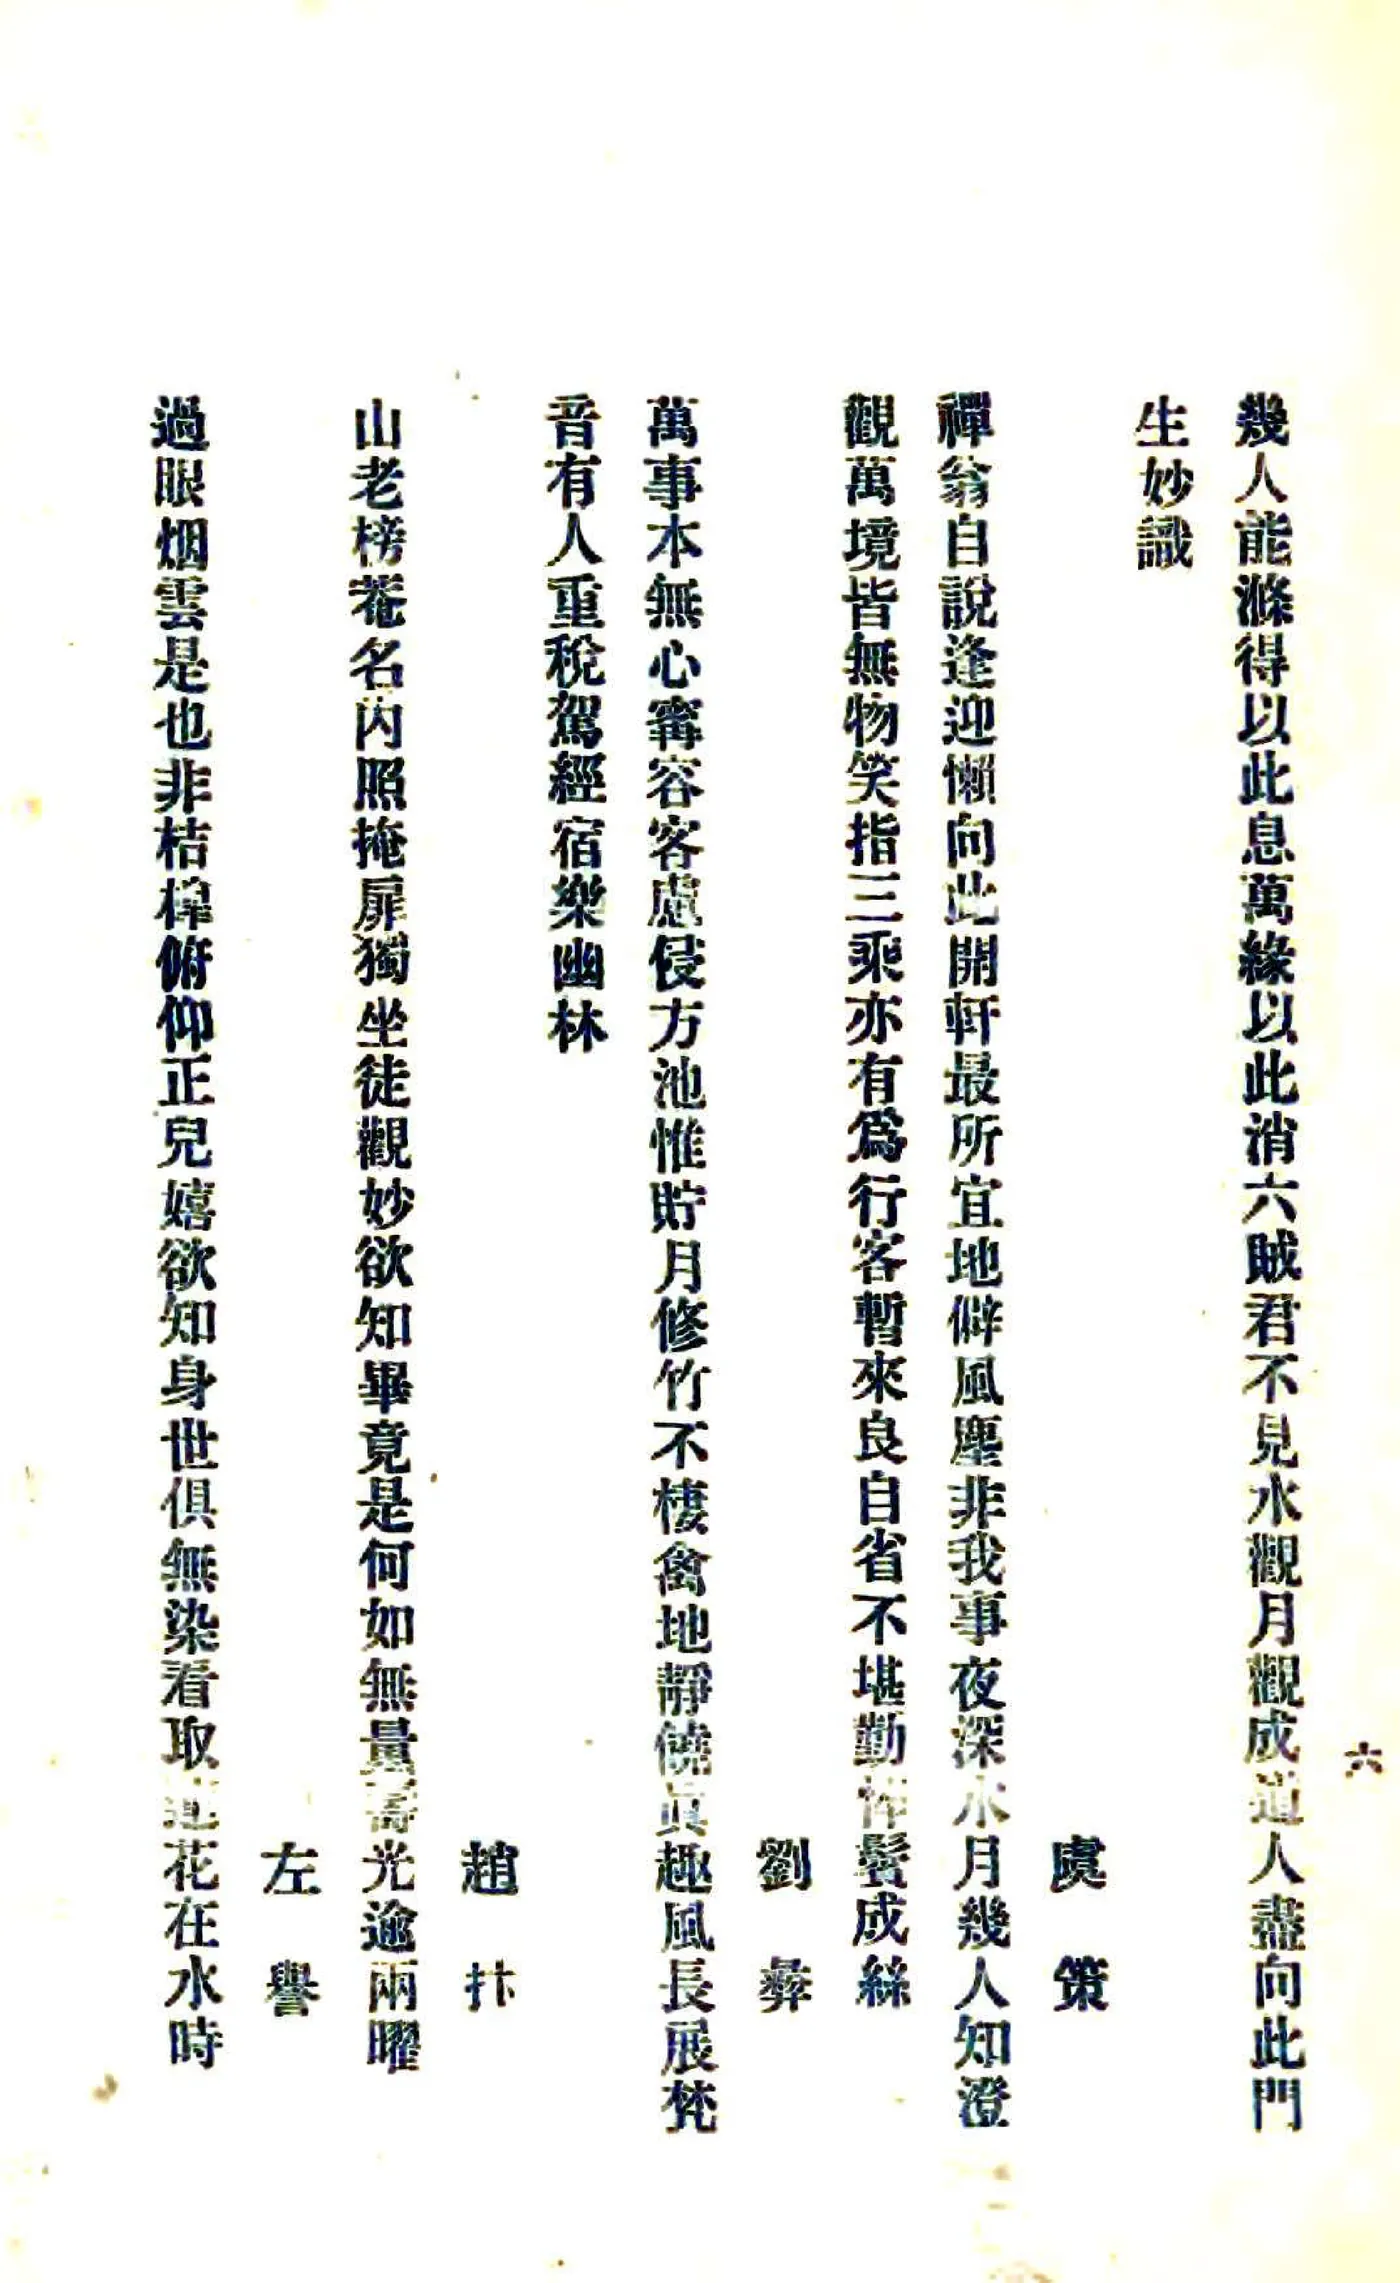 六
幾人能滌得以此息萬緣以此消六賊君不見水觀月觀成道人盡向此門
生妙識
虞策
禪翁自說逢迎懶向此開軒最所宜地僻風塵非我事夜深水月幾人知澄
觀萬境皆無物笑指三乘亦有爲行客暫來良自省不堪勤悴鬢成絲
劉彝
萬事本無心寗容客慮侵方池惟貯月修竹不棲禽地靜饒眞趣風長展梵
音有人重稅駕經宿樂幽林
趙抃
山老榜菴名內照掩扉獨坐徒觀妙欲知畢竟是何如無量壽光逾兩曜
左譽
過眼烟雲是也非桔槹俯仰正兒嬉欲知身世俱無染看取蓮花在水時